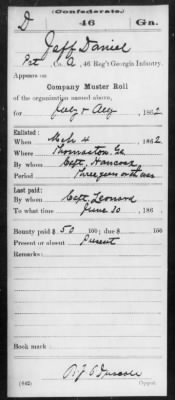 (Confederate.)
D 46 Ga.
Jeff Daniel
Pvt, Co. A, 46 Reg't Georgia Infantry.
Appears on
Company Muster Roll
of the organization named above,
for July & Aug, 1862
Enlisted:
When Mch 4 1862
Where Thomaston, Ga
By whom Capt. Hancock
Period Three years or the war
Last paid:
By whom Capt. Leonard
To what time June 30, 186
Bounty paid $ 50 100; due $ 100
Present or absent Present
Remarks:
Book mark:
(642) Copyist.